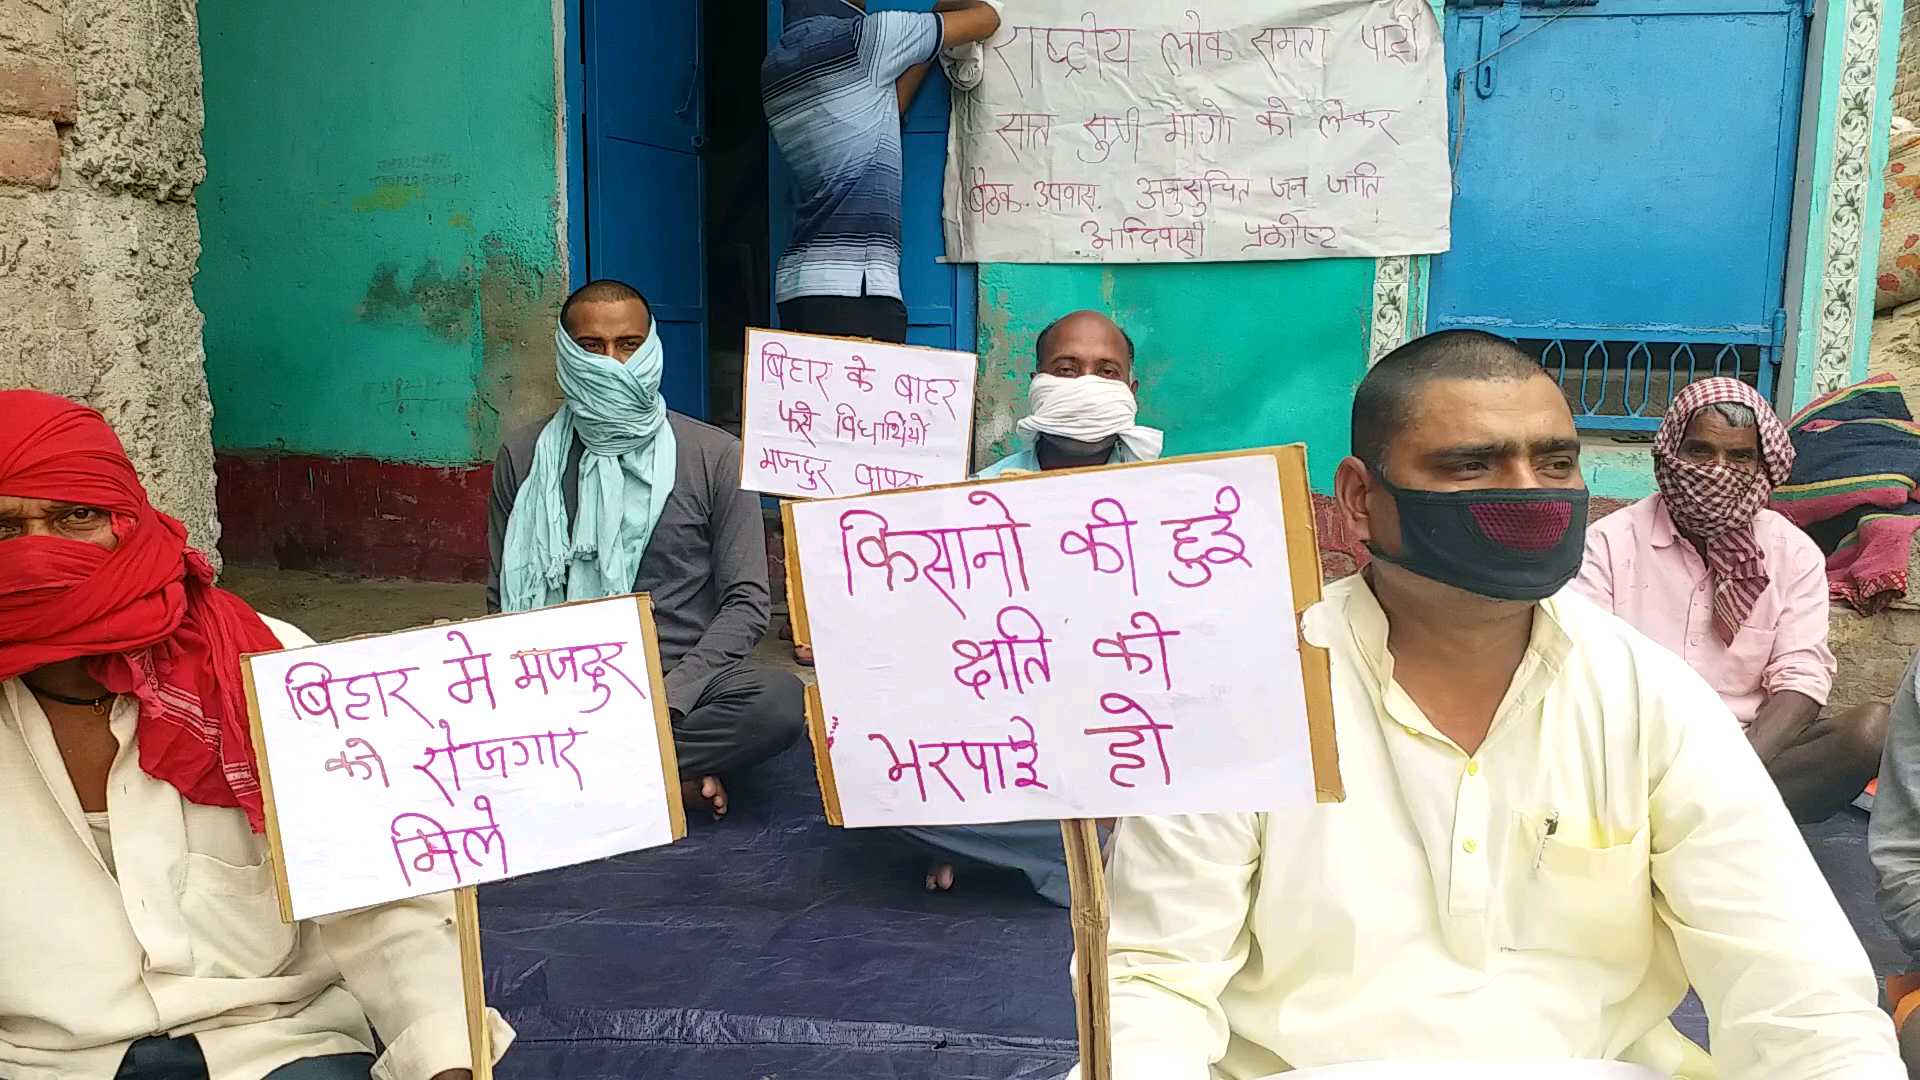 राष्ट्रीय लोक समता पार्टी
सात सुत्री मांगो को लेकर
बैठक. उपवास. अनुसुचित जन जाति
आदिवासी प्रकोष्ट
बिहार के बाहर
फसे विधार्थियो
मजदुर वापस
किसानो की हुई
क्षति की
भरपाई हो
बिहार मे मजदुर
को रोजगार
मिले